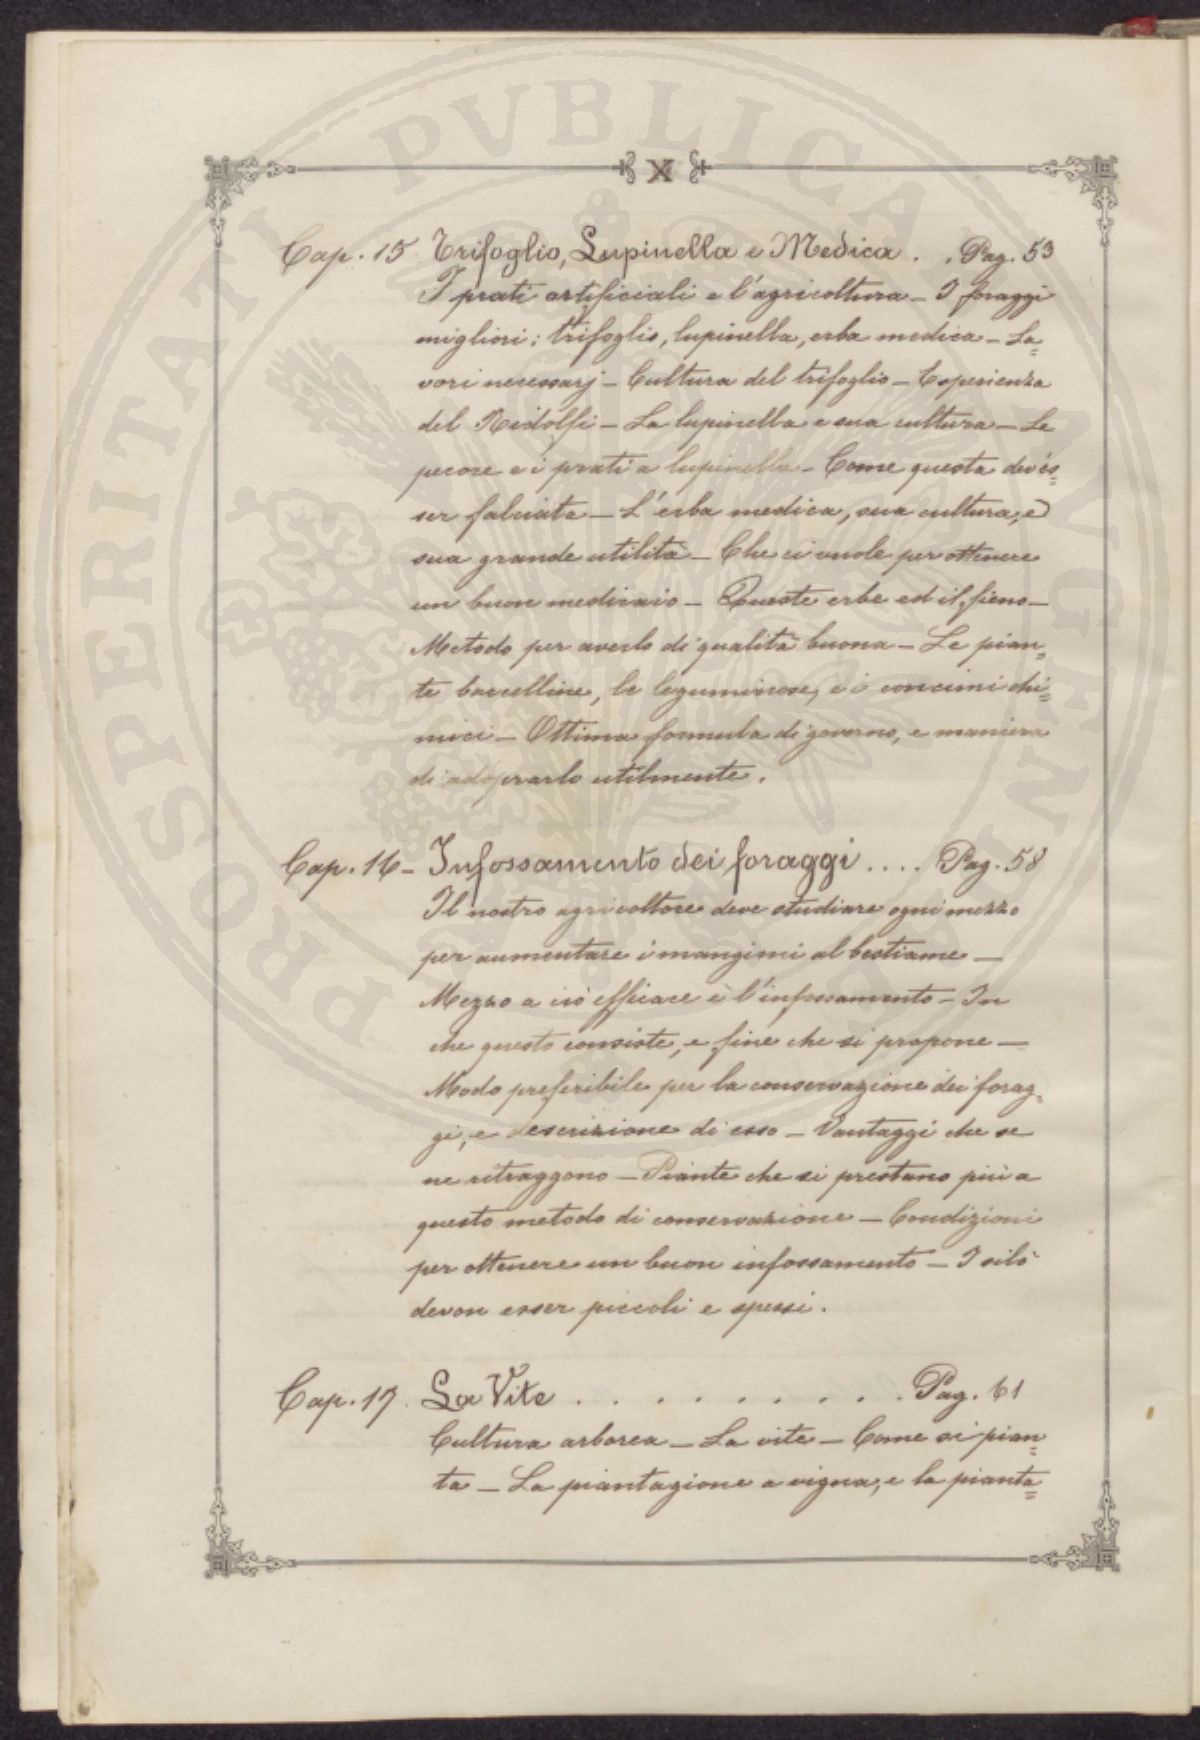 PROSPERITATI PVBLICAE AVGENDAE
X
Cap. 15 Trifoglio, Lupinella e Medica . . Pag. 53
I prati artificiali e l'agricoltura — I foraggi
migliori: trifoglio, lupinella, erba medica — La=
vori necessarj — Cultura del trifoglio — Esperienza
del Ridolfi — La lupinella e sua cultura — Le
pecore e i prati a lupinella — Come questa dev'es=
ser falciata — L'erba medica, sua cultura, e
sua grande utilità — Che ci vuole per ottenere
un buon medicaio — Queste erbe ed il fieno —
Metodo per averlo di qualità buona — Le pian=
te baccelline, le leguminose, e i concimi chi=
mici — Ottima formula di governo, e maniera
di adoprarlo utilmente.
Cap. 16 — Infossamento dei foraggi .... Pag. 58
Il nostro agricoltore deve studiare ogni mezzo
per aumentare i mangimi al bestiame —
Mezzo a ciò efficace è l'infossamento — In
che questo consiste, e fine che si propone —
Modo preferibile per la conservazione dei forag=
gi, e descrizione di esso — Vantaggi che se
ne ritraggono — Piante che si prestano più a
questo metodo di conservazione — Condizioni
per ottenere un buon infossamento — I silò
devon esser piccoli e spessi.
Cap. 17. La Vite . . . . . . . . . Pag. 61
Cultura arborea — La vite — Come si pian=
ta — La piantagione a vigna, e la pianta=